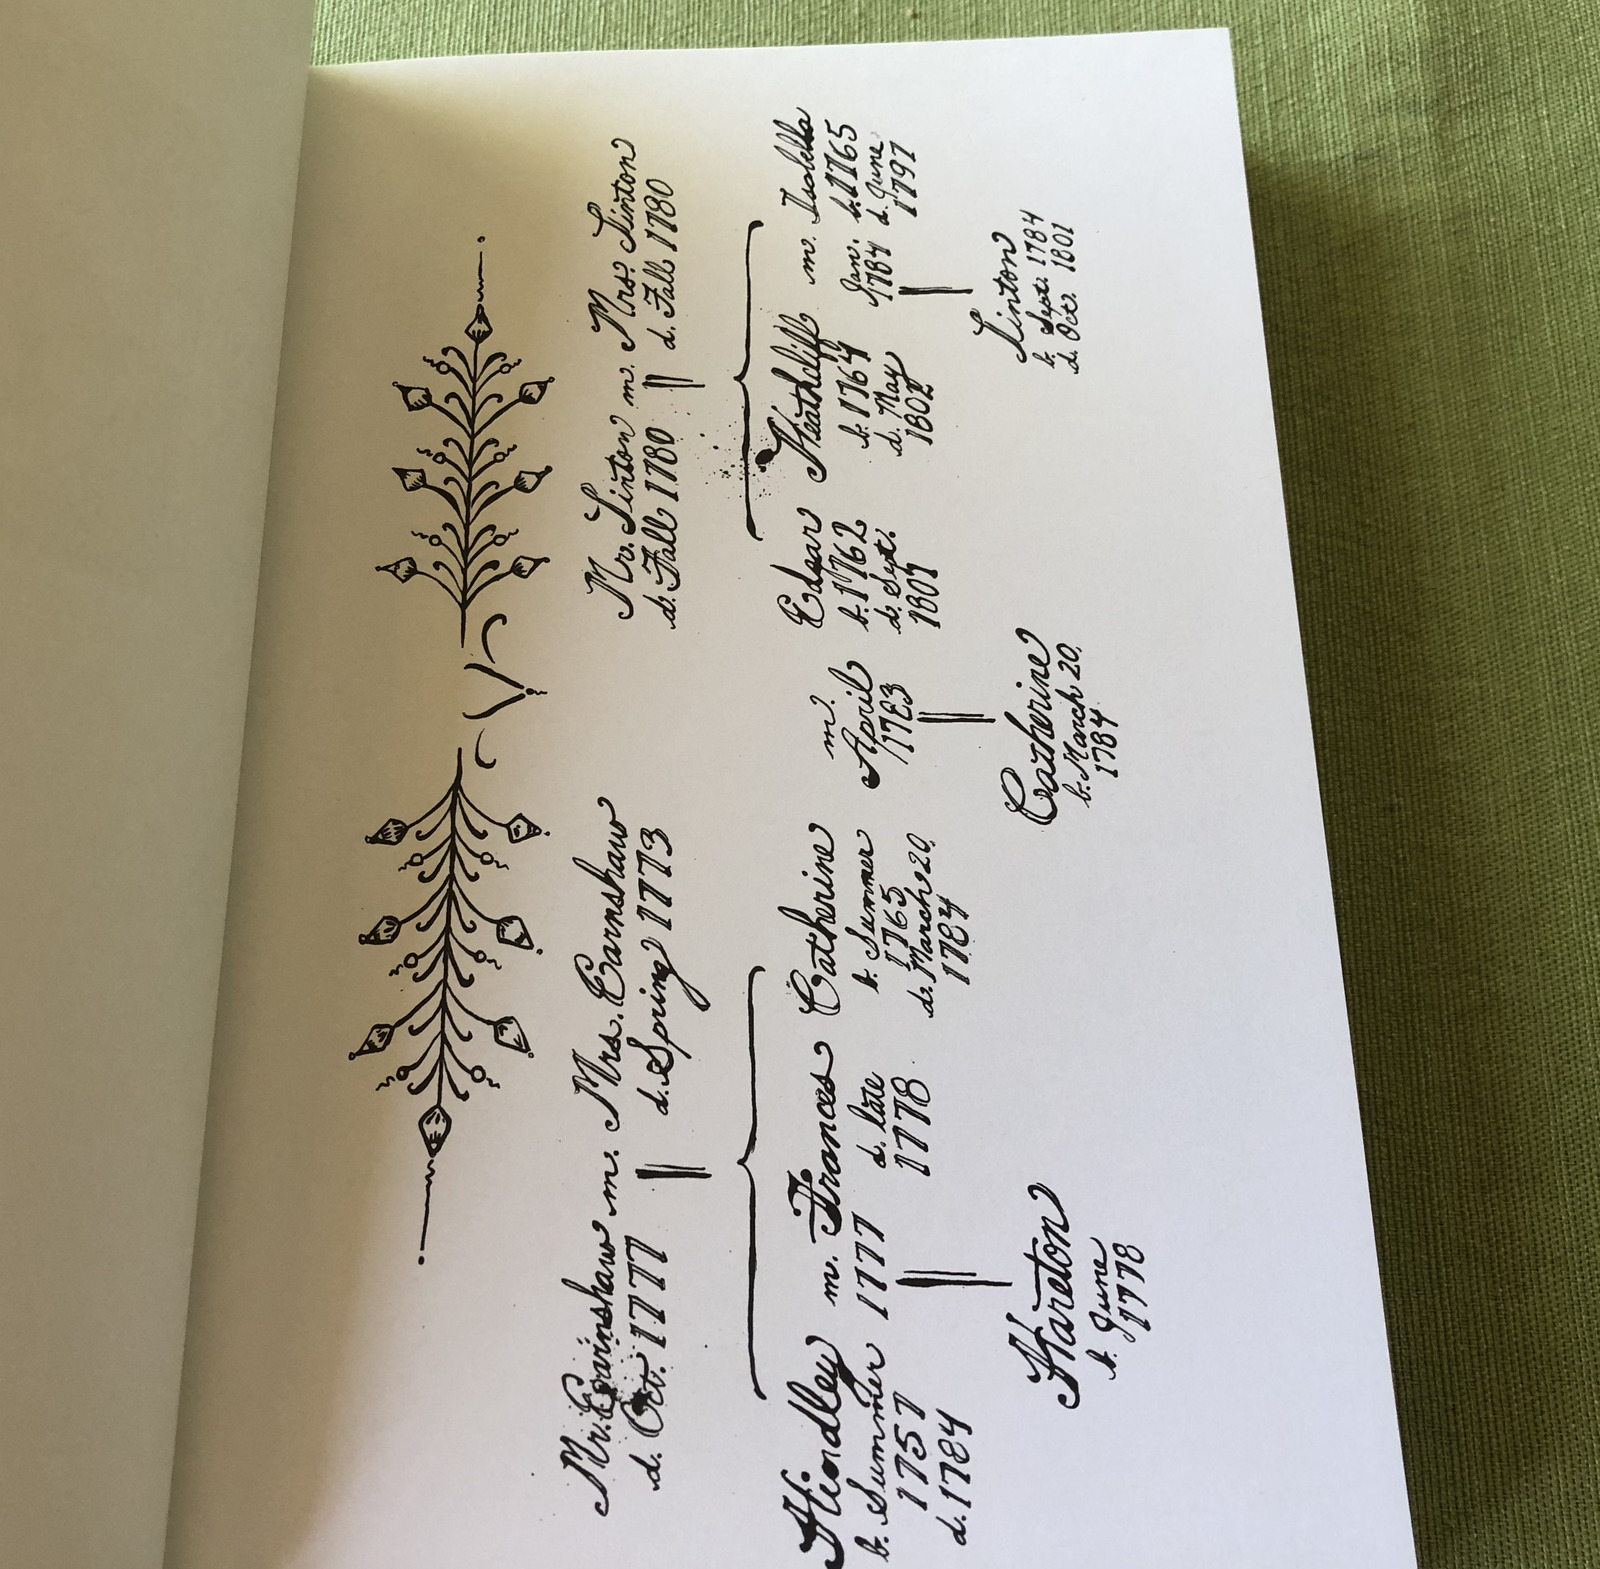 Mr. Earnshaw m. Mrs. Earnshaw
d. Oct. 1777
d. Spring 1773
Mr. Linton m. Mrs. Linton
d. Fall 1780
d. Fall 1780
Hindley m. Frances
b. Summer 1777
1757
d. 1784
d. late
1778
Catherine
b. Summer
1765
d. March 20,
1784
m.
April
1783
Edgar
b. 1762
d. Sept.
1801
Heathcliff m. Isabella
b. 1764
d. May
1802
Jan.
1784
b. 1765
d. June
1797
Hareton
b. June
1778
Catherine
b. March 20,
1784
Linton
b. Sept. 1784
d. Oct. 1801